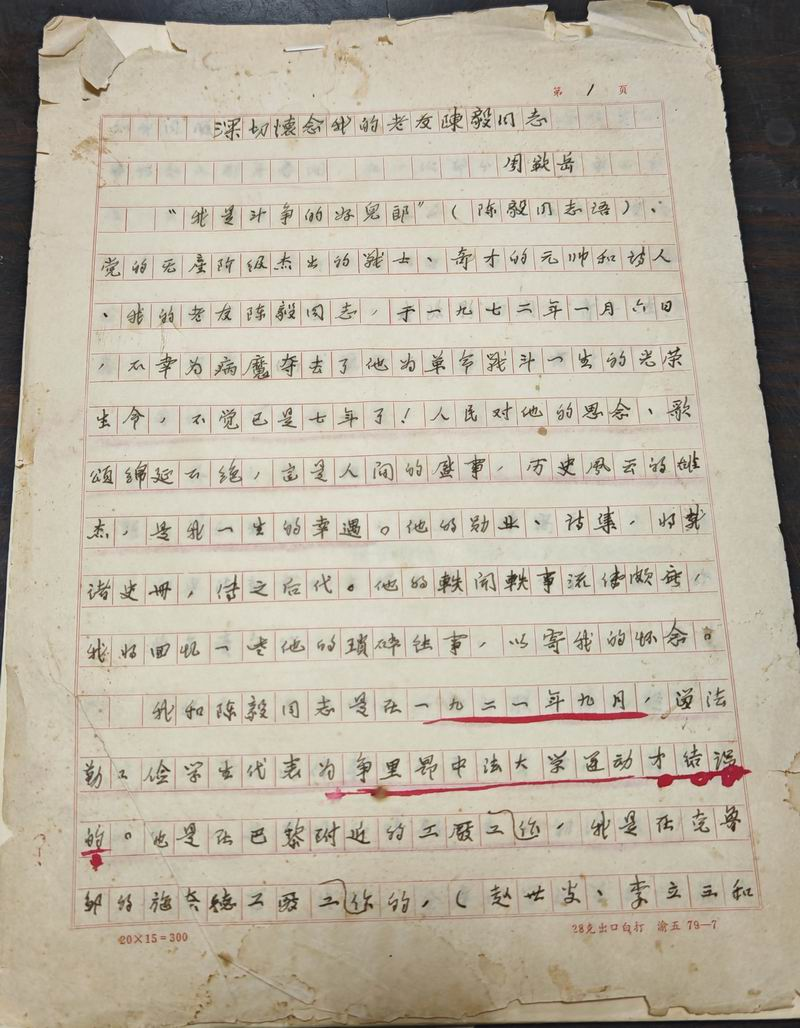 第 1 页
深切懷念我的老友陳毅同志
周欽岳
“我是斗争的好兒郎”(陈毅同志语)、
党的无產阶级杰出的战士、奇才的元帅和诗人
、我的老友陈毅同志,于一九七二年一月六日
,不幸为病魔夺去了他为革命战斗一生的光荣
生命,不觉已是七年了!人民对他的思念、歌
頌綿延不绝,這是人间的盛事,历史風云的雄
杰,是我一生的幸遇。他的勋业、诗集,将載
诸史册,传之后代。他的軼闻軼事流传颇廣,
我将回忆一些他的琐碎往事,以寄我的怀念。
我和陈毅同志是在一九二一年九月,留法
勤工俭学生代表为争里昂中法大学运动才结識
的。他是在巴黎附近的工厰工作,我是在克鲁
邹的施奈德工厰工作的,(赵世炎、李立三和
20×15=300
28克出口白打 渝五 79—7